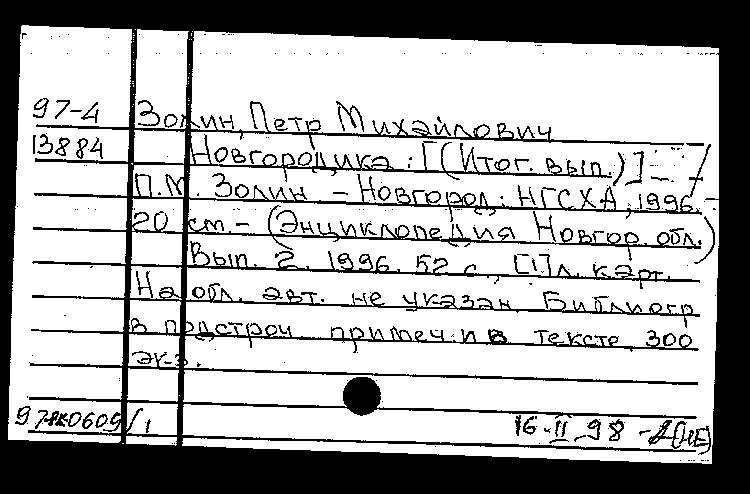 97-4 Золин, Петр Михайлович
13884 Новгородика: [(Итог. вып.)] - /
П.М. Золин - Новгород: НГСХА, 1996. -
20 см - (Энциклопедия Новгор. обл.)
Вып. 2. 1996. 52 с., [1] л. карт.
На обл. авт. не указан. Библиогр
в подстроч. примеч. и в тексте. 300
экз.
16.II.98